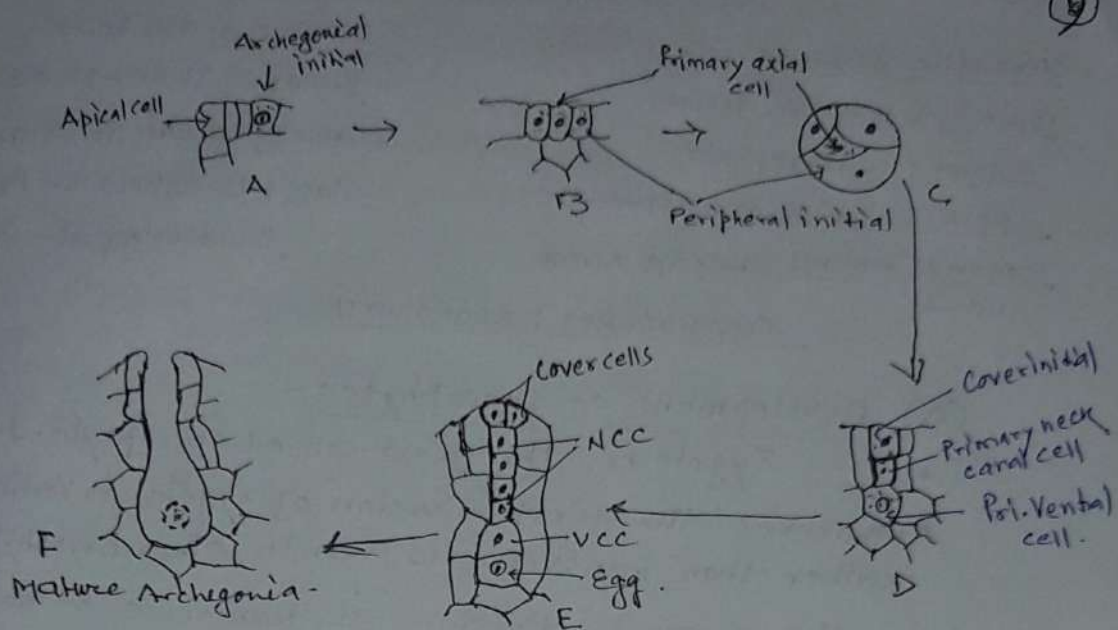 Archegonial
initial
Apical cell
A
Primary axial
cell
B
Peripheral initial
C
Cover initial
Primary neck
canal cell
Pri. Vental
cell.
D
Cover cells
NCC
VCC
Egg.
E
F
Mature Archegonia.